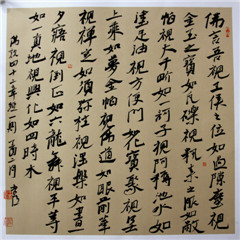 佛言吾視王侯之位如過隙塵視
金玉之寶如瓦礫視紈素之服如敝
帛視大千界如一訶子視阿耨池水如
塗足油視方便門如化寶聚視無
上乘如夢金帛視佛道如眼前華
視禪定如須彌柱視涅槃如晝
夕寤視倒正如六龍舞視平等
如一真地視興化如四時木
佛說四十二章經一則 酉二月